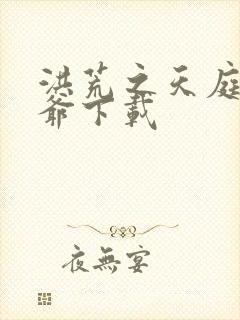 洪荒之天庭
爺下載
夜無宴